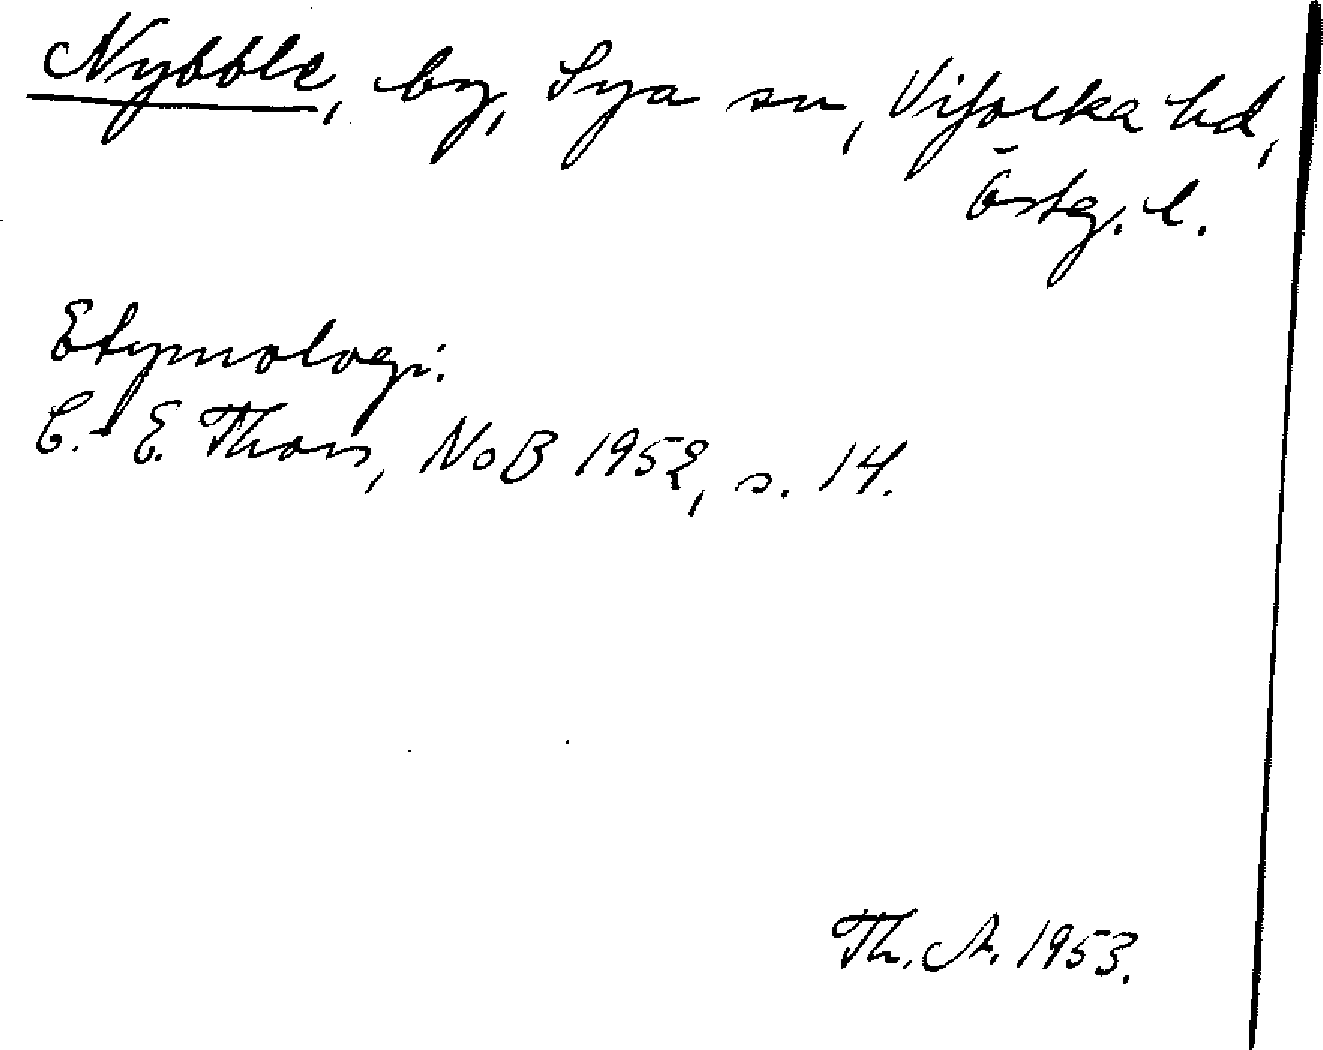 Nybble, by, Sya sn, Vifolka hd,
Östg. l.
Etymologi:
C.-E. Thors, NoB 1952, s. 14.
Th. A. 1953.